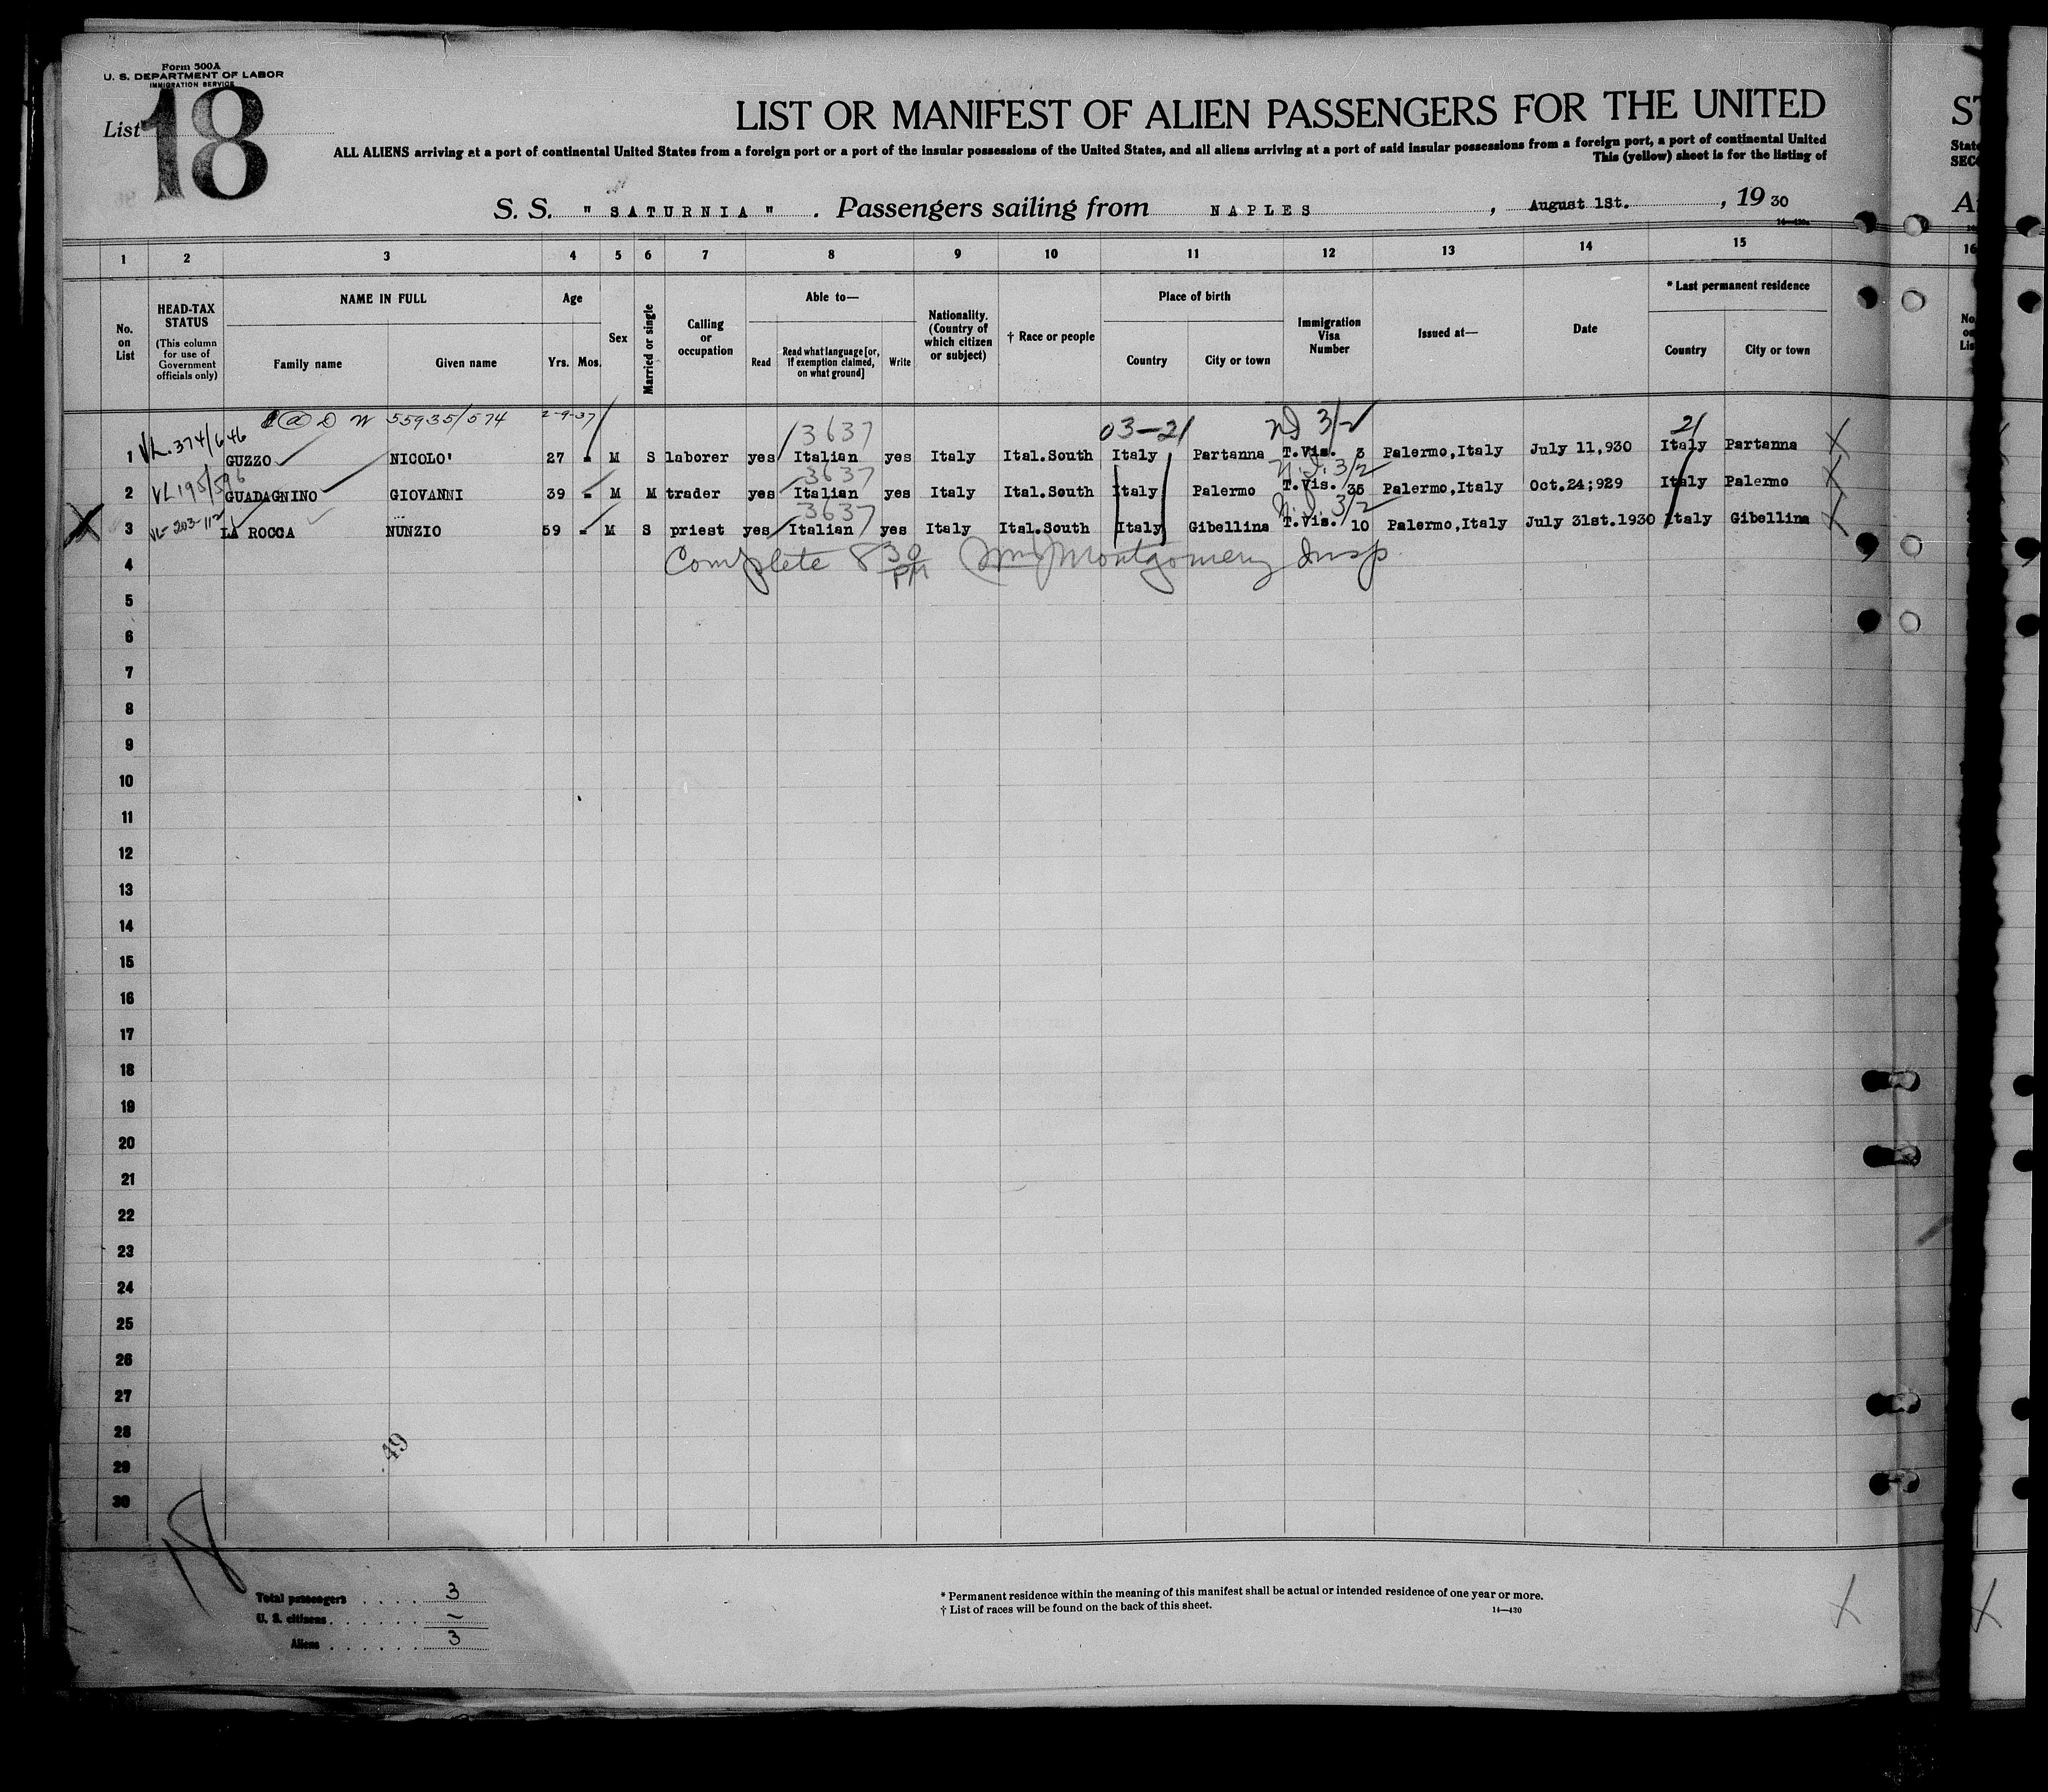 Form 500A
U. S. DEPARTMENT OF LABOR
IMMIGRATION SERVICE
List 18
LIST OR MANIFEST OF ALIEN PASSENGERS FOR THE UNITED
ALL ALIENS arriving at a port of continental United States from a foreign port or a port of the insular possessions of the United States, and all aliens arriving at a port of said insular possessions from a foreign port, a port of continental United
This (yellow) sheet is for the listing of
S. S. " SATURNIA " . Passengers sailing from NAPLES , August 1st. , 19 30
1 2 3 4 5 6 7 8 9 10 11 12 13 14 15 16
No. on List
HEAD-TAX STATUS (This column for use of Government officials only)
NAME IN FULL Family name Given name
Age Yrs. Mos.
Sex
Married or single
Calling or occupation
Able to— Read Read what language [or, if exemption claimed, on what ground] Write
Nationality. (Country of which citizen or subject)
† Race or people
Place of birth Country City or town
Immigration Visa Number
Issued at—
Date
* Last permanent residence Country City or town
W 55935/574 2-9-37
VL.374/646 3637 03-21 ND 3/2 21
1 GUZZO NICOLO' 27 - M S laborer yes Italian yes Italy Ital.South Italy Partanna T.Vis. 3 Palermo,Italy July 11,930 Italy Partanna
VL195/596 3637 N.D. 3/2
2 GUADAGNINO GIOVANNI 39 - M M trader yes Italian yes Italy Ital.South Italy Palermo T.Vis. 35 Palermo,Italy Oct.24;929 Italy Palermo
VL-203-112 3637 N.D. 3/2
3 LA ROCCA NUNZIO 59 - M S priest yes Italian yes Italy Ital.South Italy Gibellina T.Vis. 10 Palermo,Italy July 31st.1930 Italy Gibellina
4 Complete 8 30 PM Wm J Montgomery Insp.
5
6
7
8
9
10
11
12
13
14
15
16
17
18
19
20
21
22
23
24
25
26
27
28
29
30
49
18
Total passengers . . . . . 3
U. S. citizens . . . . . . –
Aliens . . . . . . 3
* Permanent residence within the meaning of this manifest shall be actual or intended residence of one year or more.
† List of races will be found on the back of this sheet.
14—430